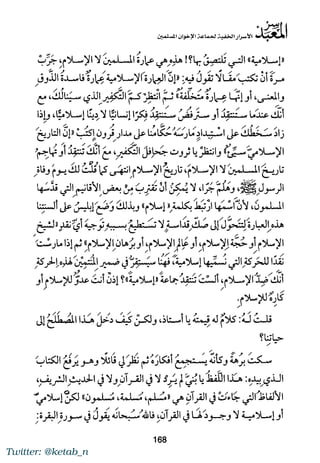 الأسرار الخفية لجماعة الإخوان المسلمين
المعبد
«إسلامية» التي تلتصق بها؟! هذه هي عمارة المسلمين لا الإسلام، جرّب
مرّة أن تكتب مقالًا تقول فيه: «إنّ العمارة الإسلامية عمارة فاسدة الذوق
والمعنى، أو إنّها عمارة متخلّفة» ثمّ انتظر كمّ التكفير الذي سينالك، مع
أنّك عندها ستنقد أو سترفض ستنتقد فكرًا إنسانيًّا لا دينًا إسلاميًّا، وإذا
زاد سخطك على استبداد مارسه حكّامنا على مدار قرون اكتب «إنّ التاريخ
الإسلامي سيّئ» وانتظر يا ثروت جحافل التكفير، مع أنّك تنتقد أو تهاجم
تاريخ المسلمين لا الإسلام، تاريخ الإسلام انتهى كما قلت لك يوم وفاة
الرسول ﷺ، وهلمّ جرًّا، لا يمكن أن تقترب من بعض الأقانيم التي قدّسها
المسلمون، لأنّ اسمها ارتبط بكلمة «إسلام» وبذلك وضع إبليس على ألسنتنا
هذه العبارة لتتحوّل إلى صك قداسة لا تستطيع بسببه توجيه أي نقد لشيخ
الإسلام أو حجّة الإسلام، أو عالم الإسلام، أو برهان الإسلام» ثم إذا مارست
نقدًا للحركة التي نسمّيها إسلامية، فإنّها سيستقرّ في ضمير المنتمين لهذه الحركة
أنّك ضدّ الإسلام، ألست تنتقد جماعة «إسلامية»؟ إذن أنت عدوّ للإسلام أو
كاره للإسلام.
قلت له: كلام له قيمته يا أستاذ، ولكن كيف دخل هذا المصطلح إلى
حياتنا؟
سكت برهة وكأنّه يستجمع أفكاره ثم نظر لي قائلًا وهو يرفع الكتاب
الذي بيده: هذا اللفظ يا بنيّ لم يرد لا في القرآن ولا في الحديث الشريف،
الألفاظ التي جاءت في القرآن هي «مسلم، مسلمة، مسلمون» لكنّ إسلاميّ
أو إسلامية لا وجود لها في القرآن، فالله سبحانه يقول في سورة البقرة:
168
Twitter: @ketab_n